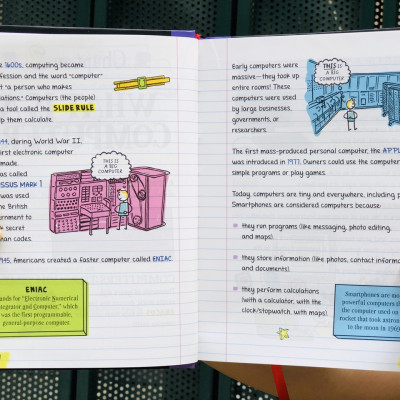 1600s, computing became
fession and the word "computer"
"a person who makes
lations." Computers (the people)
a tool called the SLIDE RULE
p them calculate.
44, during World War II,
irst electronic computer
made.
was called
OSSUS MARK 1
was used
e British
ernment to
k secret
man codes.
THIS IS
A BIG
COMPUTER
945, Americans created a faster computer called ENIAC
ENIAC
ands for "Electronic Numerical
ntegrator and Computer," which
was the first programmable,
general-purpose computer.
Early computers were
massive—they took up
entire rooms! These
computers were used
by large businesses,
governments, or
researchers.
THIS IS
A BIG
COMPUTER
The first mass-produced personal computer, the APPLE
was introduced in 1977. Owners could use the computer
simple programs or play games.
Today, computers are tiny and everywhere, including p
Smartphones are considered computers because:
they run programs (like messaging, photo editing,
and maps).
they store information (like photos, contact inform
and documents).
they perform calculations
(with a calculator, with the
clock/stopwatch, with maps).
Smartphones are mo
powerful computers th
the computer used on
rocket that took astron
to the moon in 196